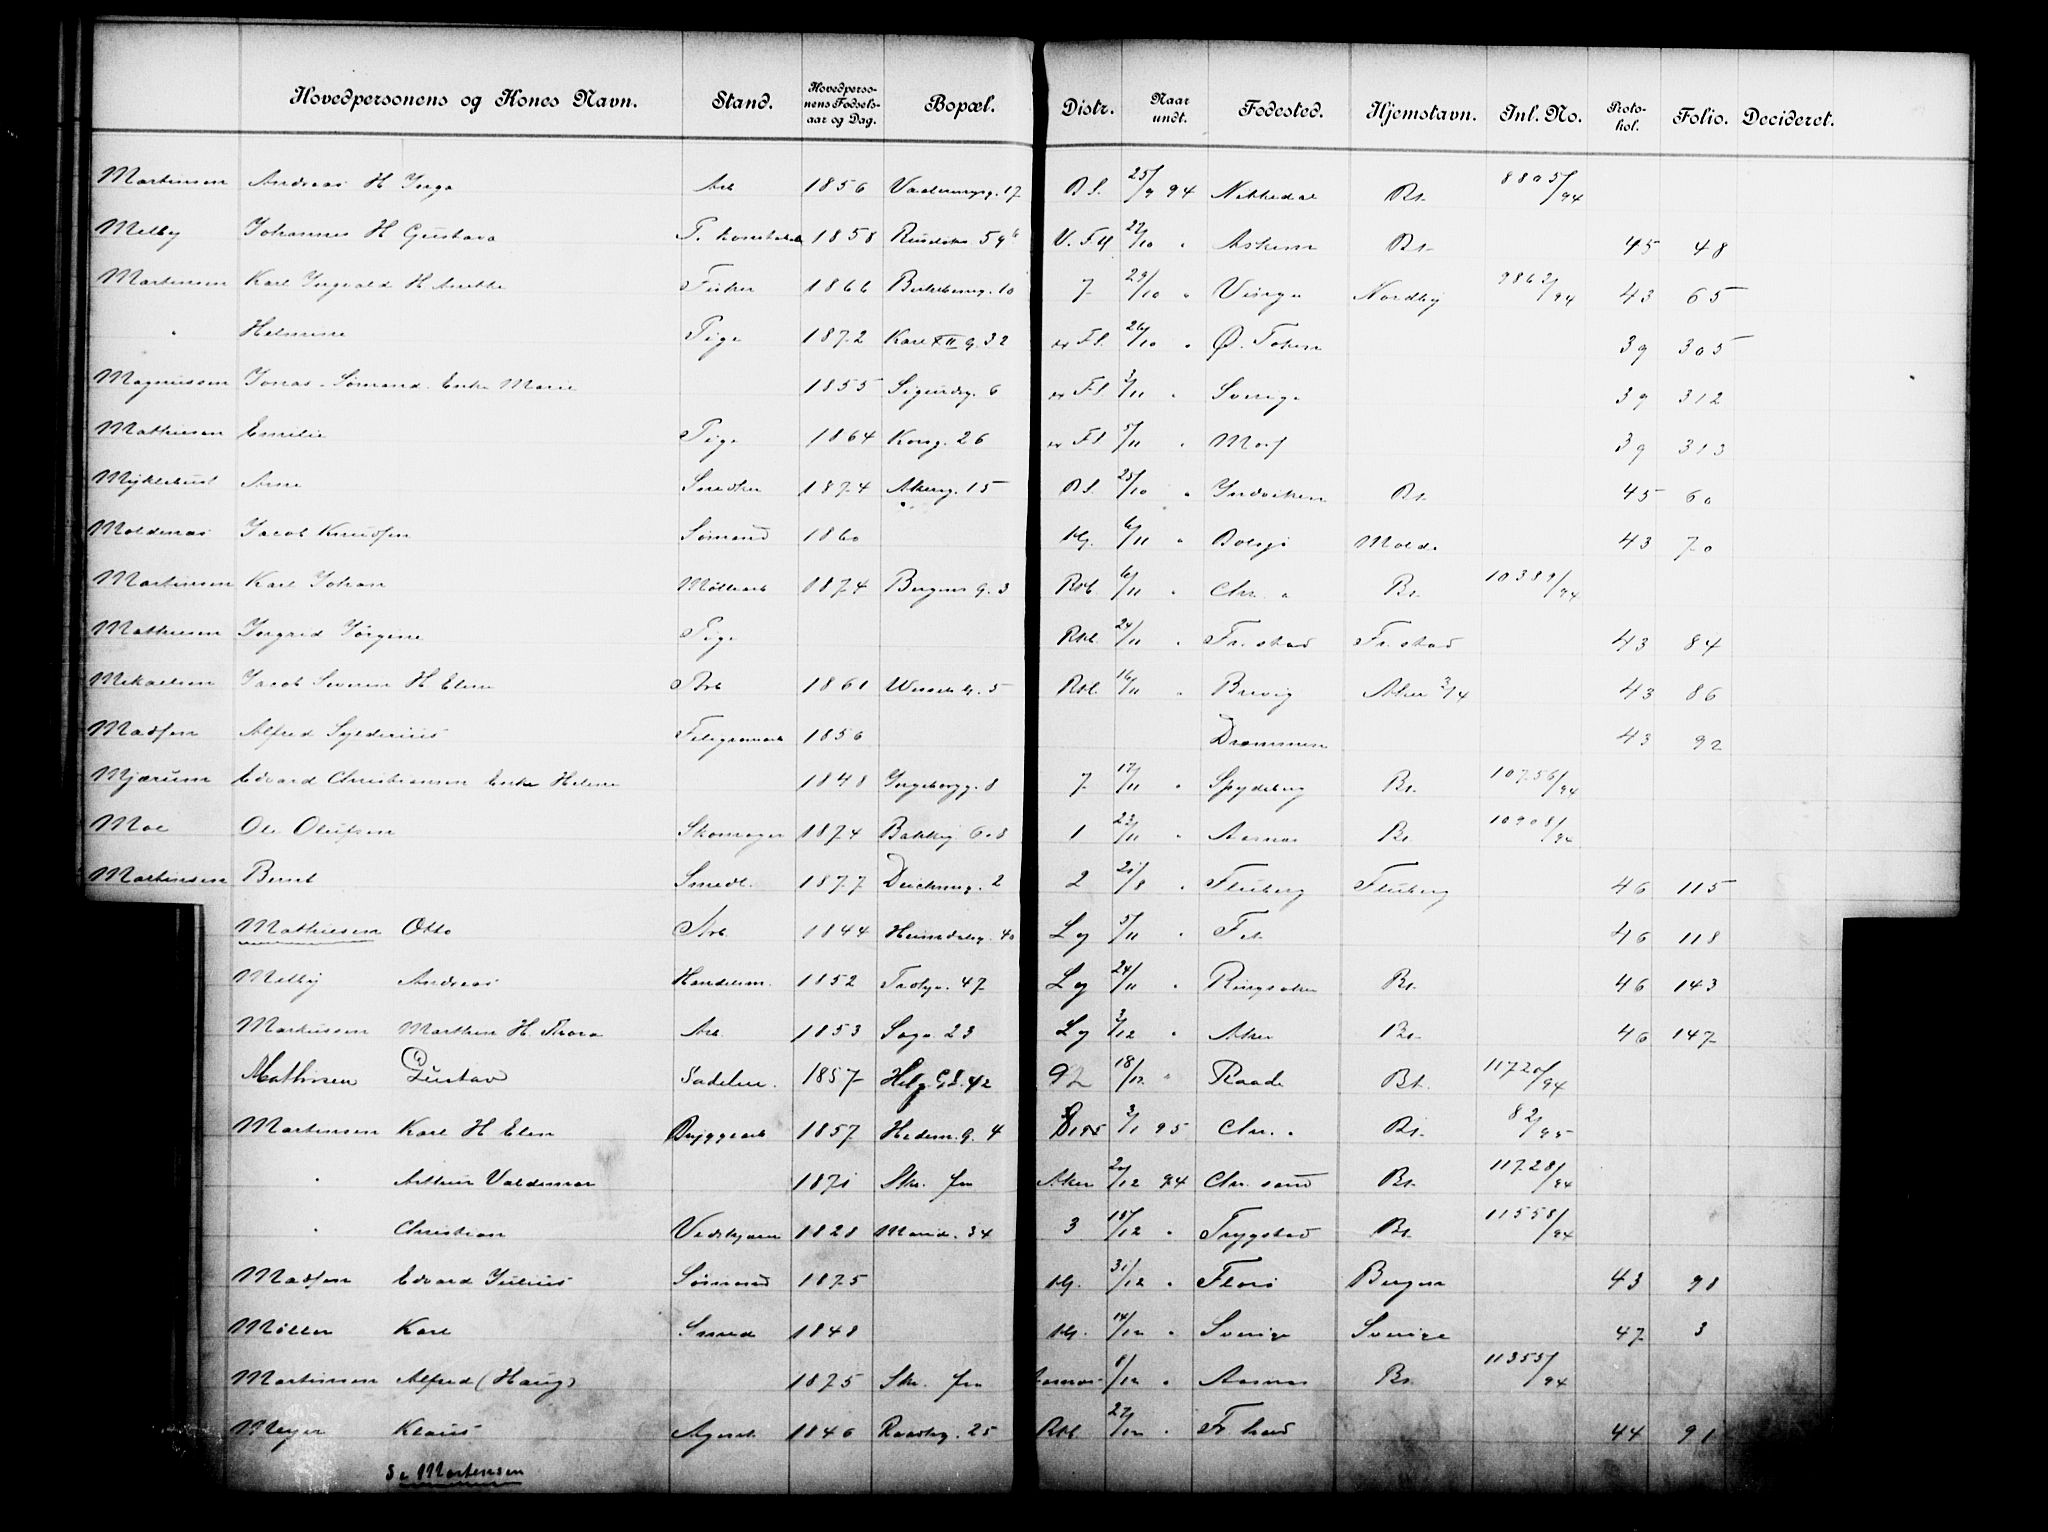 Hovedpersonens og Kones Navn. Stand. Hovedperso-nens Fødsels-aar og Dag. Bopæl. Distr. Naar undt. Fødested. Hjemstavn. Inl. No. Proto-kol. Folio. Decideret.
Martinsen Andreas H Inga Arb 1856 17 B S. 25/9 94 Nittedal Bt. 8805/94
Melby Johannes H Gustava 1858 59b V. Fll 22/10 " Askim Bt. 45 48
Martinsen Karl Ingvald H Anette Fisker 1866 10 7 29/10 " Nordby 9862/94 43 65
" Helmine Pige 1872 Karl XII g. 32 Fl. 26/10 " Ø. Toten 39 305
Magnussen Jonas Sømand. Enke Marie 1855 Sigurdsg. 6 Fl 3/11 " Sverige 39 312
Mathiesen Emilie Pige 1864 Korsg. 26 Fl 5/11 " Mosf 39 313
Myklebust Arne Snedker 1874 Akersg. 15 B S. 25/10 " Indviken Bt. 45 60
Moldenæs Jacob Knudsen Sømand 1860 6/11 " Bolsø Molde 43 70
Martinsen Karl Johan Møllearb 1874 Bergens G. 3 Rst. 6/11 " Chr. a Bt. 10389/94
Mathiesen Ingrid Jørgine Pige Rst. 24/11 " Fr. stad Fr. stad 43 84
Mikaelsen Jacob H Elen Arb 1861 5 Rst. 16/11 " Brevig Aker 43 86
Madsen Alfred 1856 Drammen 43 92
Mjærum Edvard Christiansen Enke Helene 1848 Ingeborgg. 8 7 17/11 " Spydeberg Bt. 10756/94
Moe Ole Olufsen Skomager 1874 Bakkeg 6 o 8 1 23/11 " Aasnæs Bt. 10908/94
Martinsen Bernt Smedl. 1877 Deichmsg. 2 2 21/8 " Fluberg Fluberg 46 115
Mathiesen Otto Arb. 1844 Heimdalsg. 40 Lg 5/11 " Fet 46 118
Melby Andreas Handelsm. 1852 47 Lg 24/11 " Ringsaker Bt. 46 143
Markussen Marthin H Thora Arb. 1853 23 Lg 3/12 " Aker Bt. 46 147
Mathisen Gustav Sadelm. 1857 Helg. G S. 42 92 18/12 " Raade Bt. 11720/94
Martinsen Karl H Elen Bryggearb 1857 Hedem. G. 4 3/1 95 Chr. a Bt. 82/95
" Arthur Valdemar 1871 Aker 20/12 94 Chr. sand Bt. 11728/94
" Christian 1828 Marid. 34 3 15/12 " Trygstad Bt. 11558/94
Madsen Edvard Julius Sømand 1875 31/12 " Florø Bergen 43 98
Möller Karl Smed 1848 14/12 " Sverige Sverige 47 3
Martinsen Alfred (Haug) 1875 Aasnæs 8/12 " Aasnæs Bt. 11355/94
Meyer Klaus Agent 1846 Raadhg. 25 Rst. 27/12 " Fr. hald 44 91
Se Mortensen